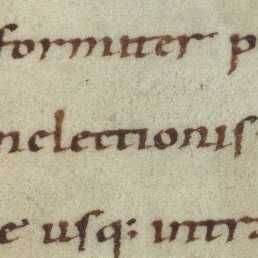 formiter p
nelectionis
e usq; intra